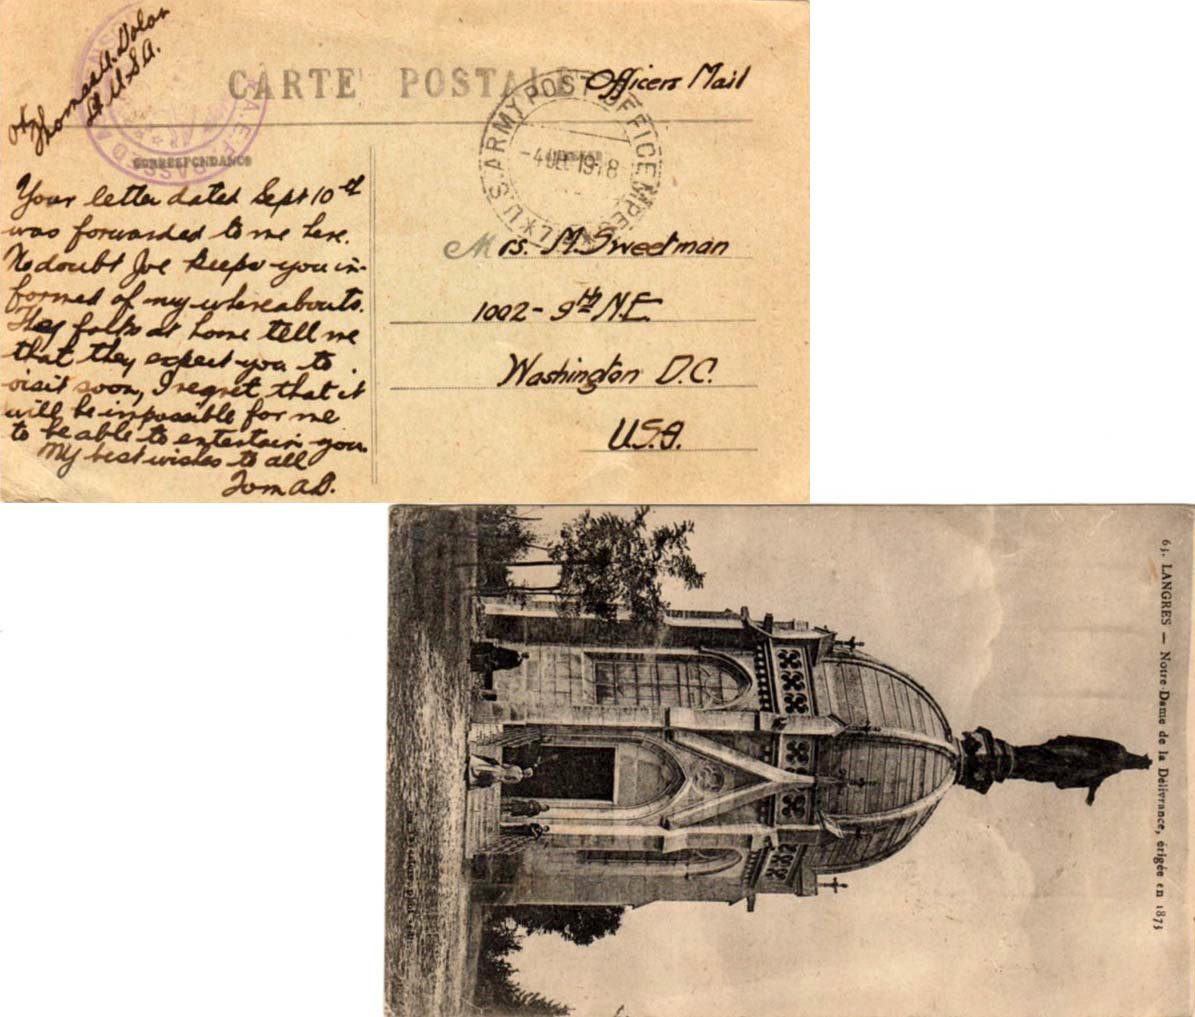 Thomas A. Dolan
Lt. U.S.A.
CARTE POSTALE
Officers Mail
A.E.F. PASSED
CORRESPONDANCE
U.S. ARMY POST OFFICE M.P.E.S.
-4 DEC 1918
Your letter dated Sept 10 th
was forwarded to me here.
No doubt Joe keeps you in-
formed of my whereabouts.
They folks at home tell me
that they expect you to
visit soon, I regret that it
will be impossible for me
to be able to entertain you.
My best wishes to all
Tom A.D.
Mrs. M. Sweetman
1002 - 9th N.E.
Washington D.C.
U.S.A.
63. LANGRES — Notre-Dame de la Délivrance, érigée en 1873